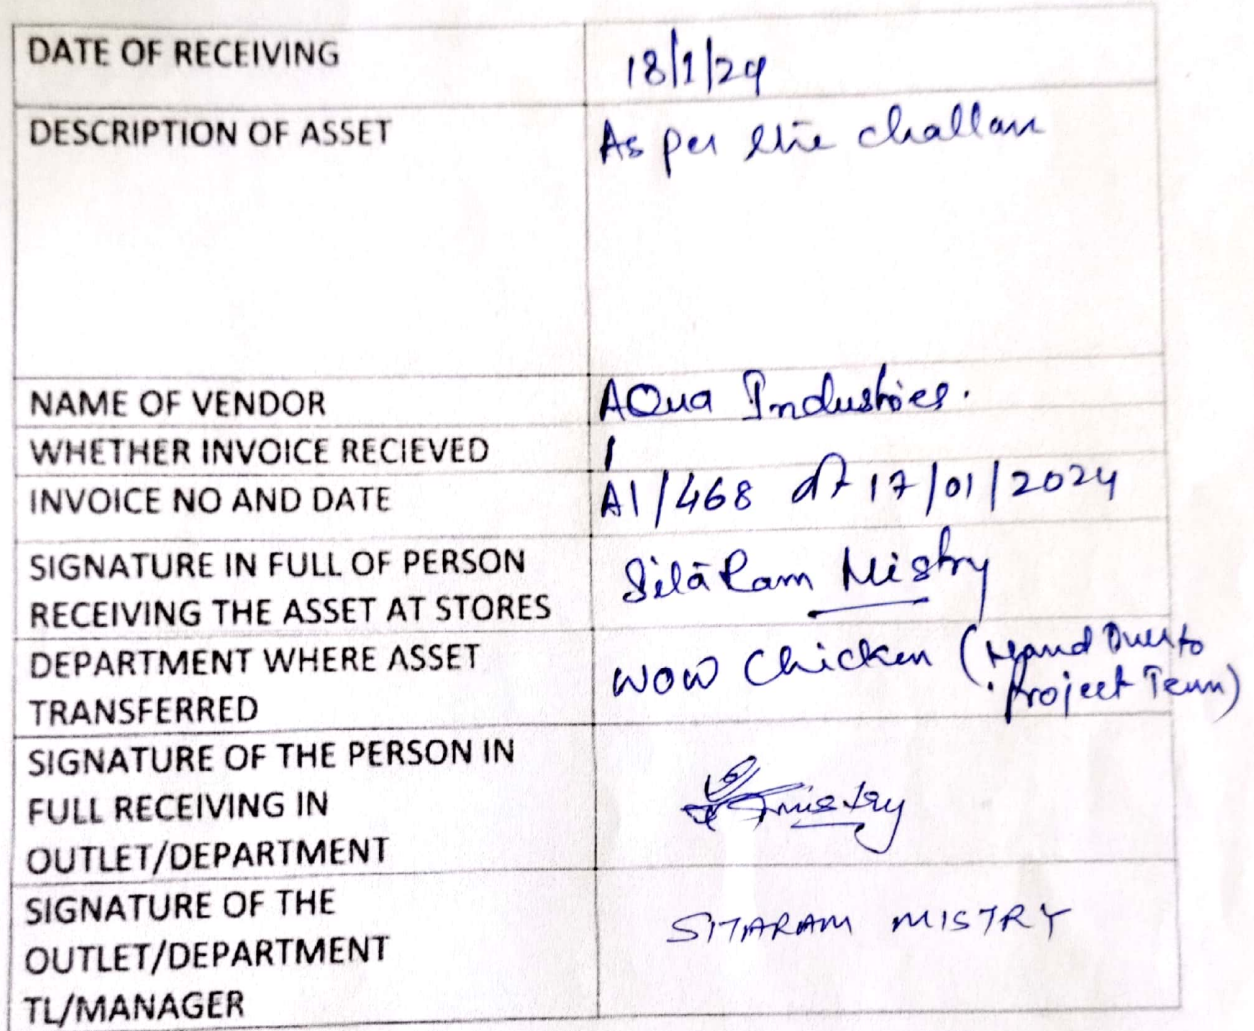 DATE OF RECEIVING 18/1/24
DESCRIPTION OF ASSET As per the challan
NAME OF VENDOR AQua Industries.
WHETHER INVOICE RECIEVED
INVOICE NO AND DATE A1/468 dt 17/01/2024
SIGNATURE IN FULL OF PERSON
RECEIVING THE ASSET AT STORES
SitaRam Mistry
DEPARTMENT WHERE ASSET
TRANSFERRED
WOW Chicken (Hand Over to
Project Team)
SIGNATURE OF THE PERSON IN
FULL RECEIVING IN
OUTLET/DEPARTMENT
mistry
SIGNATURE OF THE
OUTLET/DEPARTMENT
TL/MANAGER
SITARAM MISTRY